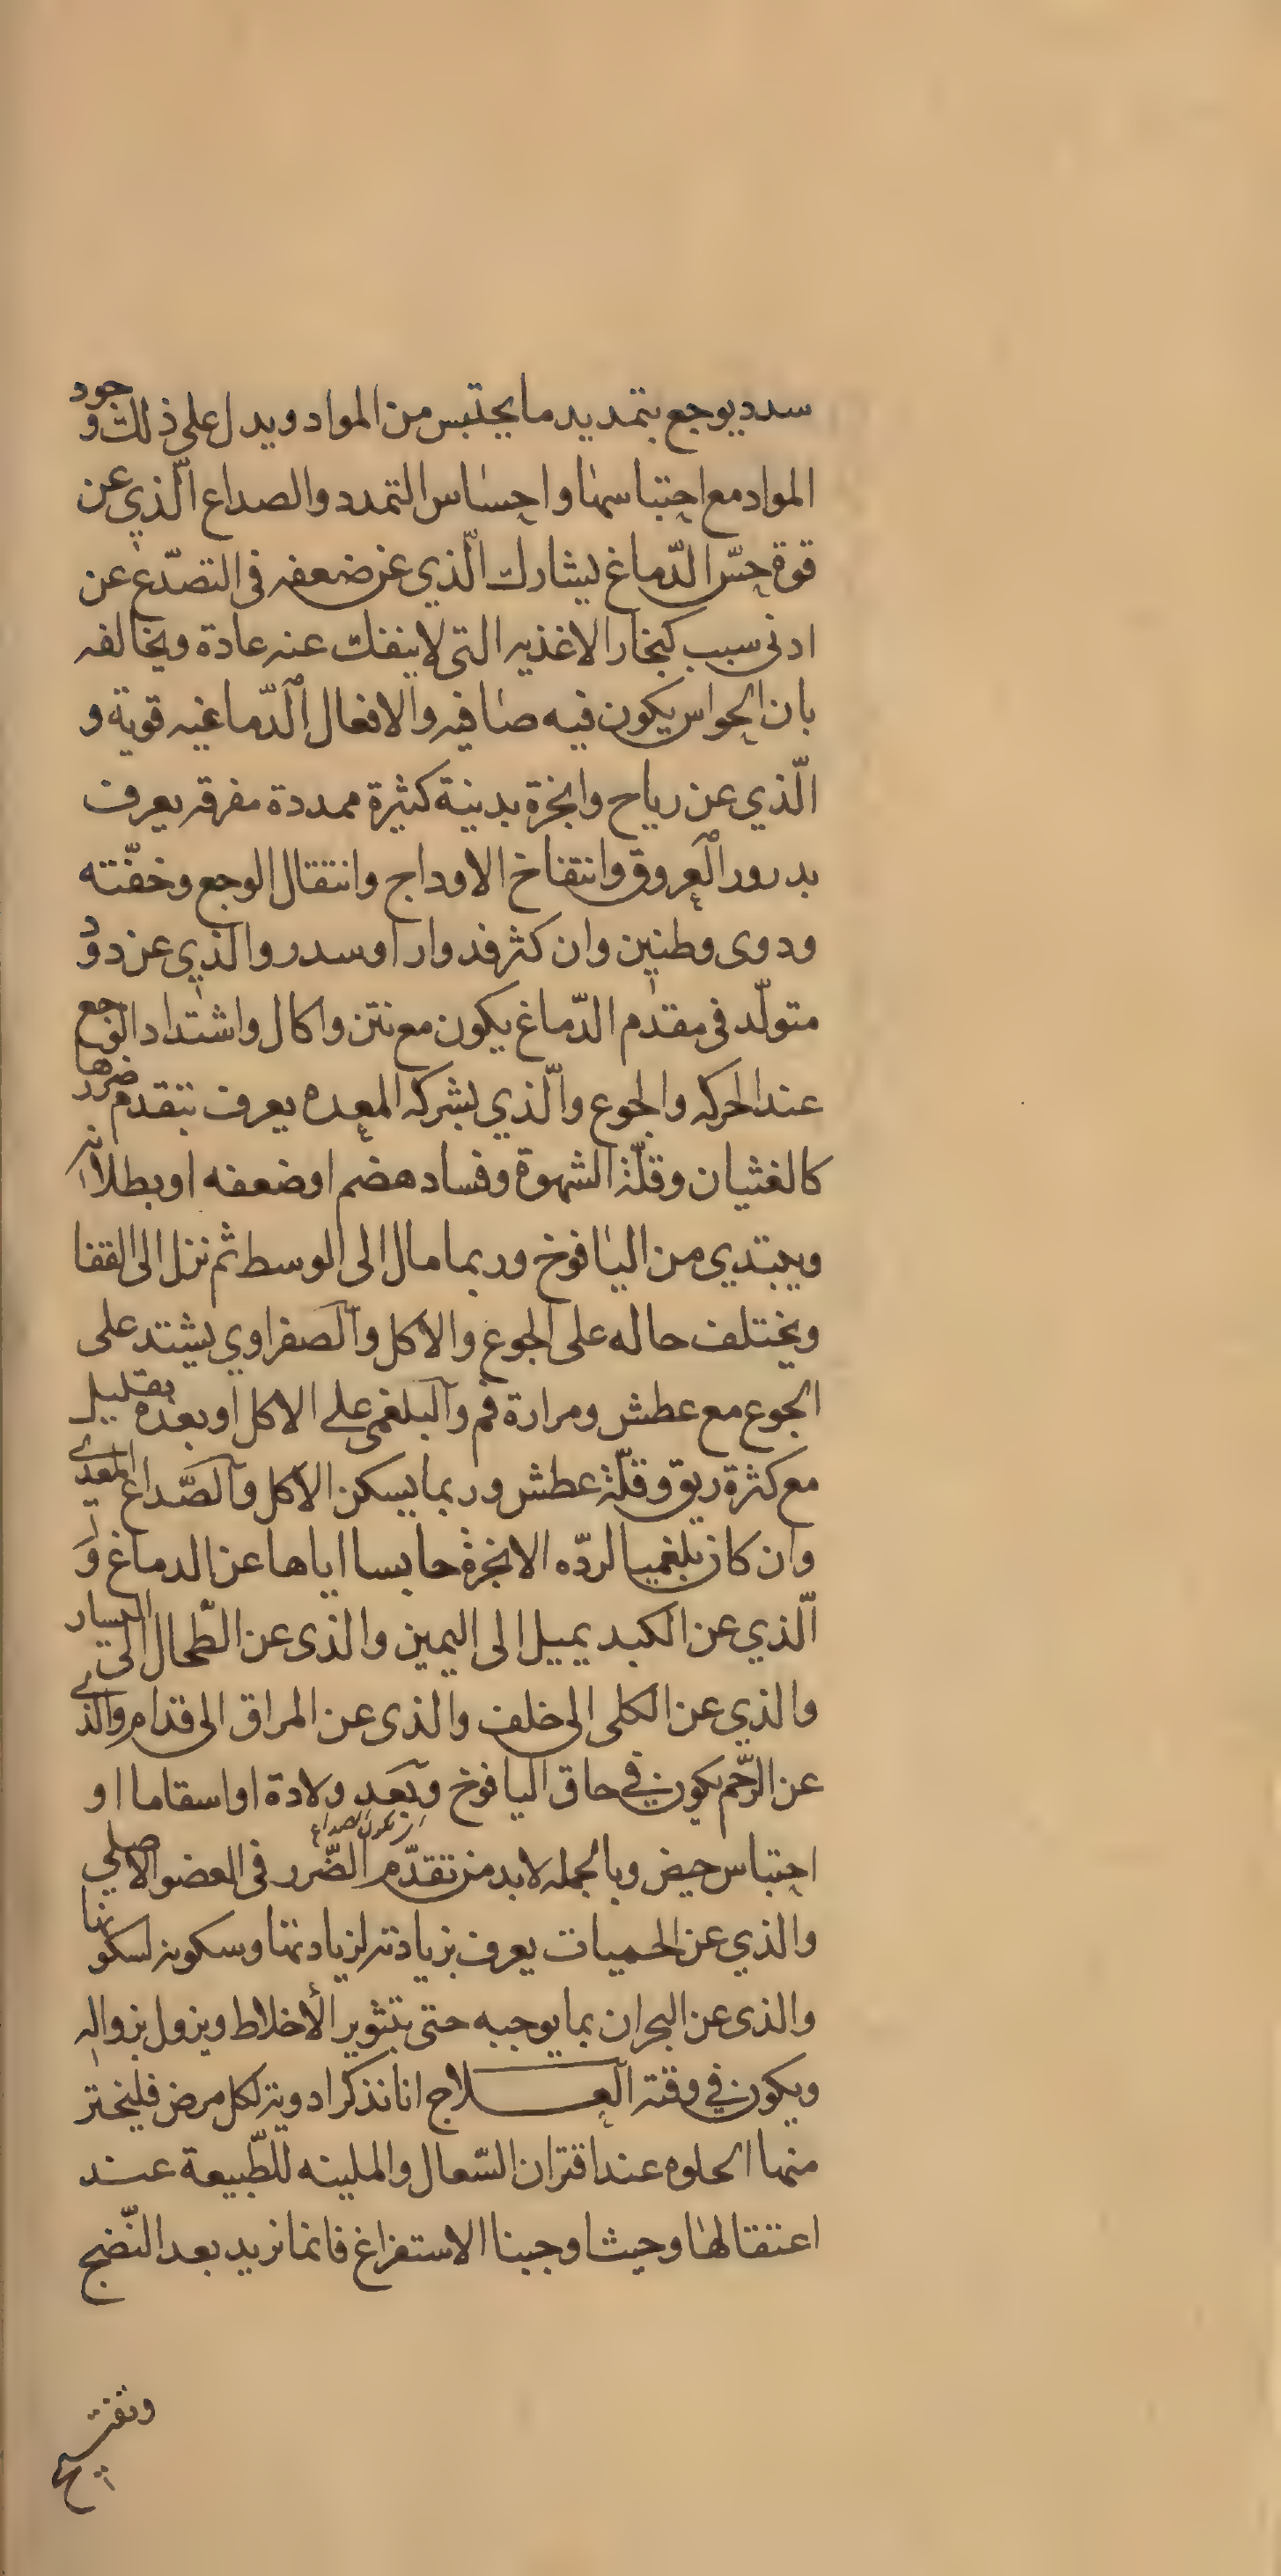 سدد يوجع بتمديد ما يحتبس من المواد ويدل على ذلك وجود
المواد مع احتباسها واحساس التمدد والصداع الّذي عن
قوة حسّ الدّماغ يشارك الّذي عن ضعفه فى التصدّع عن
ادنى سبب كبخار الاغذيه التى لا ينفك عنه عادة ويخالفه
بان الحواس يكون فيه صافيه والافعال الدّماغيه قوية و
الّذي عن رياح وابخرة بدنية كثيرة ممددة مفرقه يعرف
بدرور العروق وانتفاخ الاوداج وانتقال الوجع وخفّته
ودوى وطنين وان كثر فدوار او سدر والذي عن دود
متولّد فى مقدم الدّماغ يكون مع نتن واكال واشتداد الوجع
عند الحركه والجوع والّذي بشركه المعده يعرف بتقدم ضررها
كالغثيان وقلّة الشهوة وفساد هضم او ضعفه او بطلانه
ويبتدي من اليافوخ وربما مال الى الوسط ثم نزل الى القفا
ويختلف حاله على الجوع والاكل والصفراوي يشتد على
الجوع مع عطش ومرارة فم والبلغمى على الاكل او بعده بقليل
مع كثرة ريق وقلّة عطش وربما يسكن الاكل والصّداع المعدي
وان كان بلغميا لردّه الابخرة حابسا اياها عن الدماغ و
الّذي عن الكبد يميل الى اليمين والذى عن الطّحال الى اليسار
والذي عن الكلى الى خلف والذى عن المراق الى قدام والذي
عن الرّحم يكون في حاق اليافوخ وبعد ولادة او اسقاما او
احتباس حيض وبالجمله لا بد من تقدّم الضّرر فى العضو الاصلي
والذي عن الحميات يعرف بزيادته لزيادتها وسكونه لسكونها
والذى عن البحران بما يوجبه حتى بتثوير الأخلاط ويزول بزواله
ويكون في وقته العـلاج انا نذكر ادوية لكل مرض فليختر
منها الحلوه عند اقتران السّعال والملينه للطّبيعة عند
اعتقالها وحيث اوجبنا الاستفراغ فانما نريد بعد النّضج